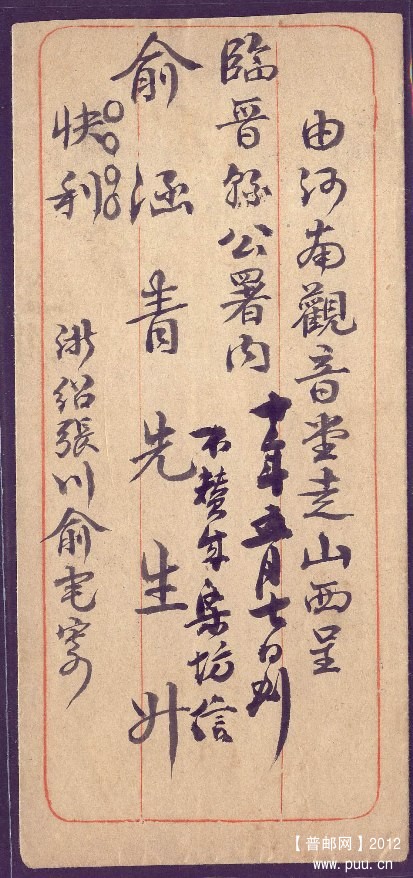 由河南觀音堂走山西呈
臨晉縣公署内
十年五月七日到
不贊年案坊信
俞涵青先生升
快利
浙紹張川俞宅寄
【普邮网】2012
www.puu.cn